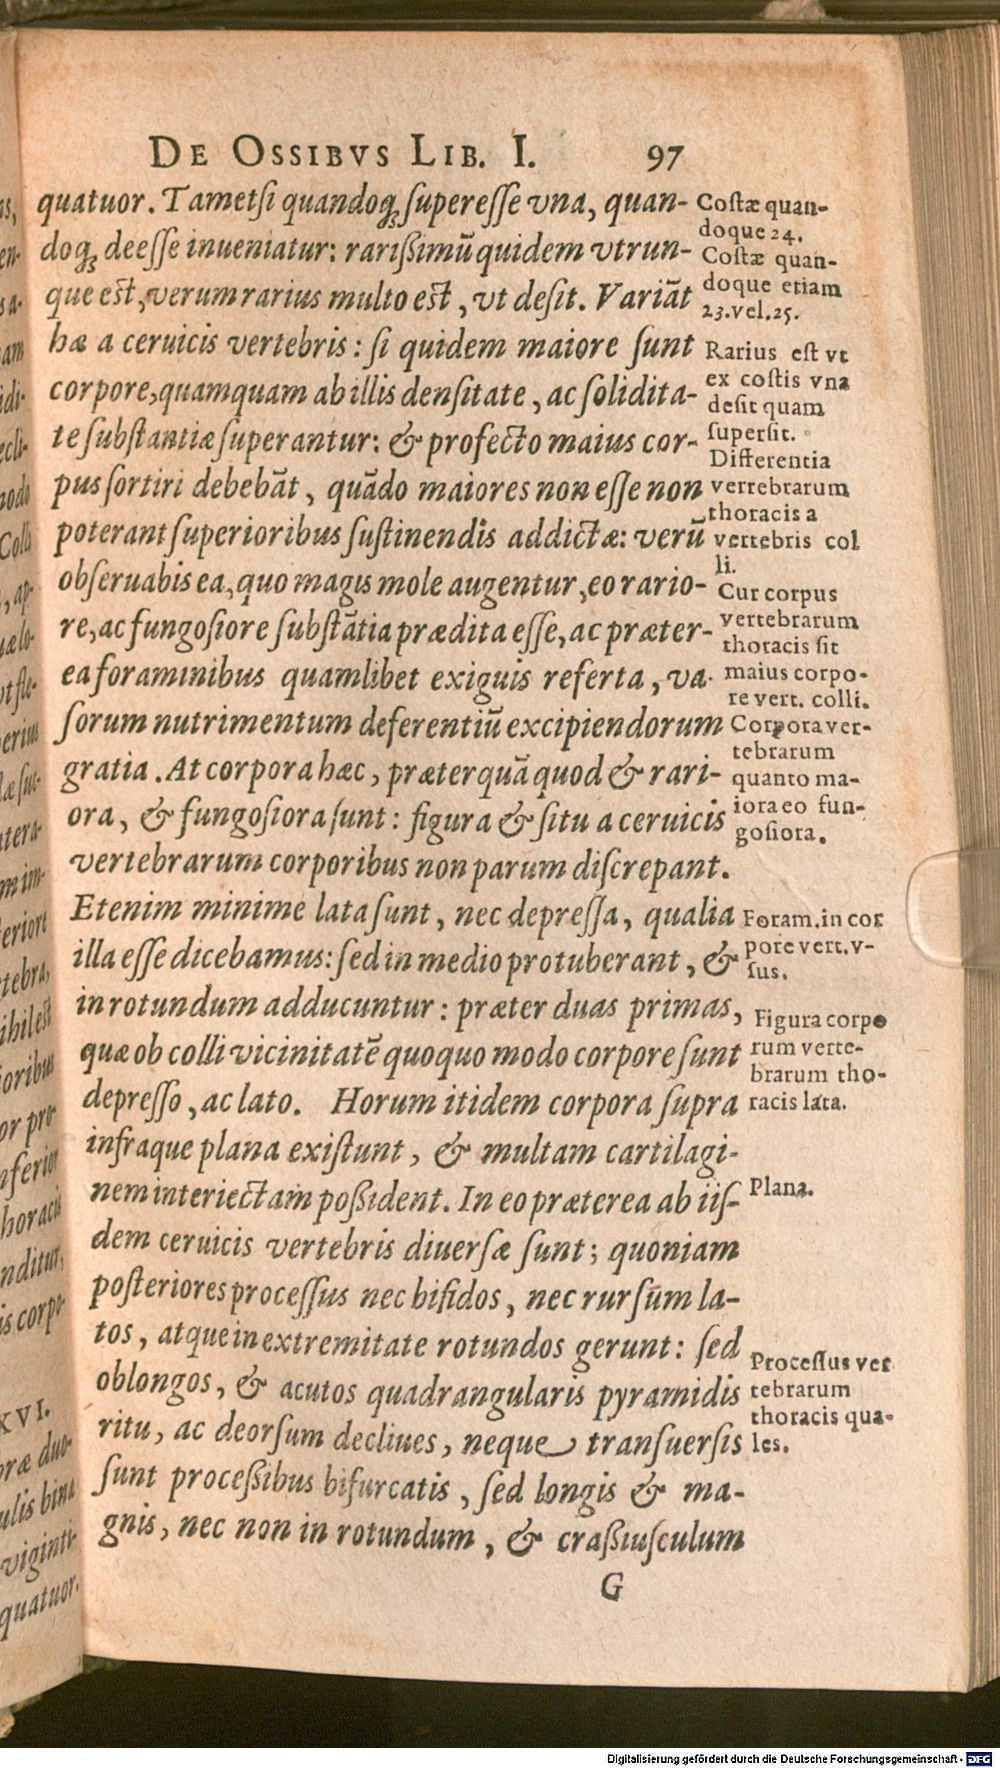 DE OSSIBVS LIB. I. 97
quatuor. Tametsi quandoq; superesse vna, quan-
doq; deesse inueniatur: rarißimũ quidem vtrun-
que est, verum rarius multo est, vt desit. Variãt
hæ a ceruicis vertebris: si quidem maiore sunt
corpore, quamquam ab illis densitate, ac solidita-
te substantiæ superantur: & profecto maius cor-
pus sortiri debebãt, quãdo maiores non esse non
poterant superioribus sustinendis addictæ: verũ
obseruabis ea, quo magis mole augentur, eo rario-
re, ac fungosiore substãtia prædita esse, ac præter-
ea foraminibus quamlibet exiguis referta, va-
sorum nutrimentum deferentiũ excipiendorum
gratia. At corpora hæc, præterquã quod & rari-
ora, & fungosiora sunt: figura & situ a ceruicis
vertebrarum corporibus non parum discrepant.
Etenim minime lata sunt, nec depressa, qualia
illa esse dicebamus: sed in medio protuberant, &
in rotundum adducuntur: præter duas primas,
quæ ob colli vicinitatẽ quoquo modo corpore sunt
depresso, ac lato. Horum itidem corpora supra
infraque plana existunt, & multam cartilagi-
nem interiectam poßident. In eo præterea ab iis-
dem ceruicis vertebris diuersæ sunt; quoniam
posteriores processus nec bifidos, nec rursũm la-
tos, atque in extremitate rotundos gerunt: sed
oblongos, & acutos quadrangularis pyramidis
ritu, ac deorsum decliues, neque transuersis
sunt proceßibus bifurcatis, sed longis & ma-
gnis, nec non in rotundum, & craßiusculum
G
Costæ quan-
doque 24.
Costæ quan-
doque etiam
23. vel. 25.
Rarius est vt
ex costis vna
desit quam
supersit.
Differentia
verrebrarum
thoracis a
vertebris col
li.
Cur corpus
vertebrarum
thoracis sit
maius corpo-
re vert. colli.
Corpora ver-
tebrarum
quanto ma-
iora eo fun-
gosiora.
Foram. in cor
pore vert. v-
sus.
Figura corpo
rum verte-
brarum tho-
racis lata.
Plana.
Processus ver
tebrarum
thoracis qua-
les.
en-
am
idi-
ecli-
nodo
Colli
vt fle-
erius
ntera-
m im-
feriori
tebra,
ihil est
ioribus
or pro-
nferior
horacis
nditur,
is corpo-
XVI.
bræ duo-
ulis bina
viginti-
quatuor.
Digitalisierung gefördert durch die Deutsche Forschungsgemeinschaft - DFG